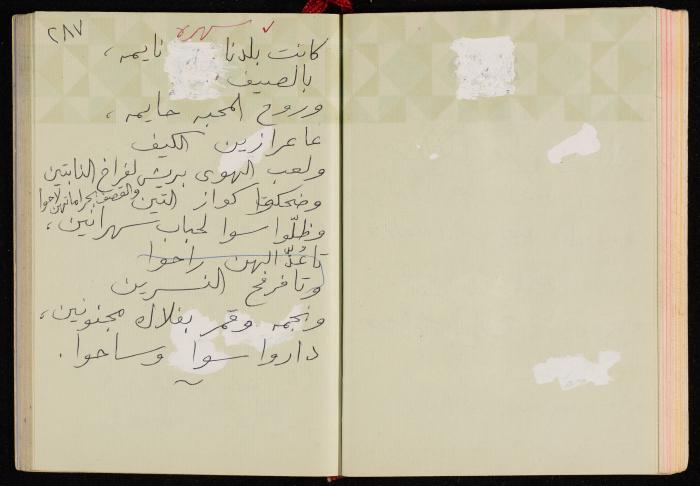 ٢٨٧
سهره
كانت بلدنا نايمه،
بالصيف
وروح المحبه حايمه،
عا عرازين الكيف
ولعب الهوى بريش لفراخ النابتين
وضحكوا كواز التين والقصف بحراماتهن لاحوا
وظلّوا سوا لحباب سهرانين،
تا عُدّ البهن راحوا
وتا فرفح النسرين
ونجمه وقمر بفلاك مجنونين،
داروا سوا وساحوا.